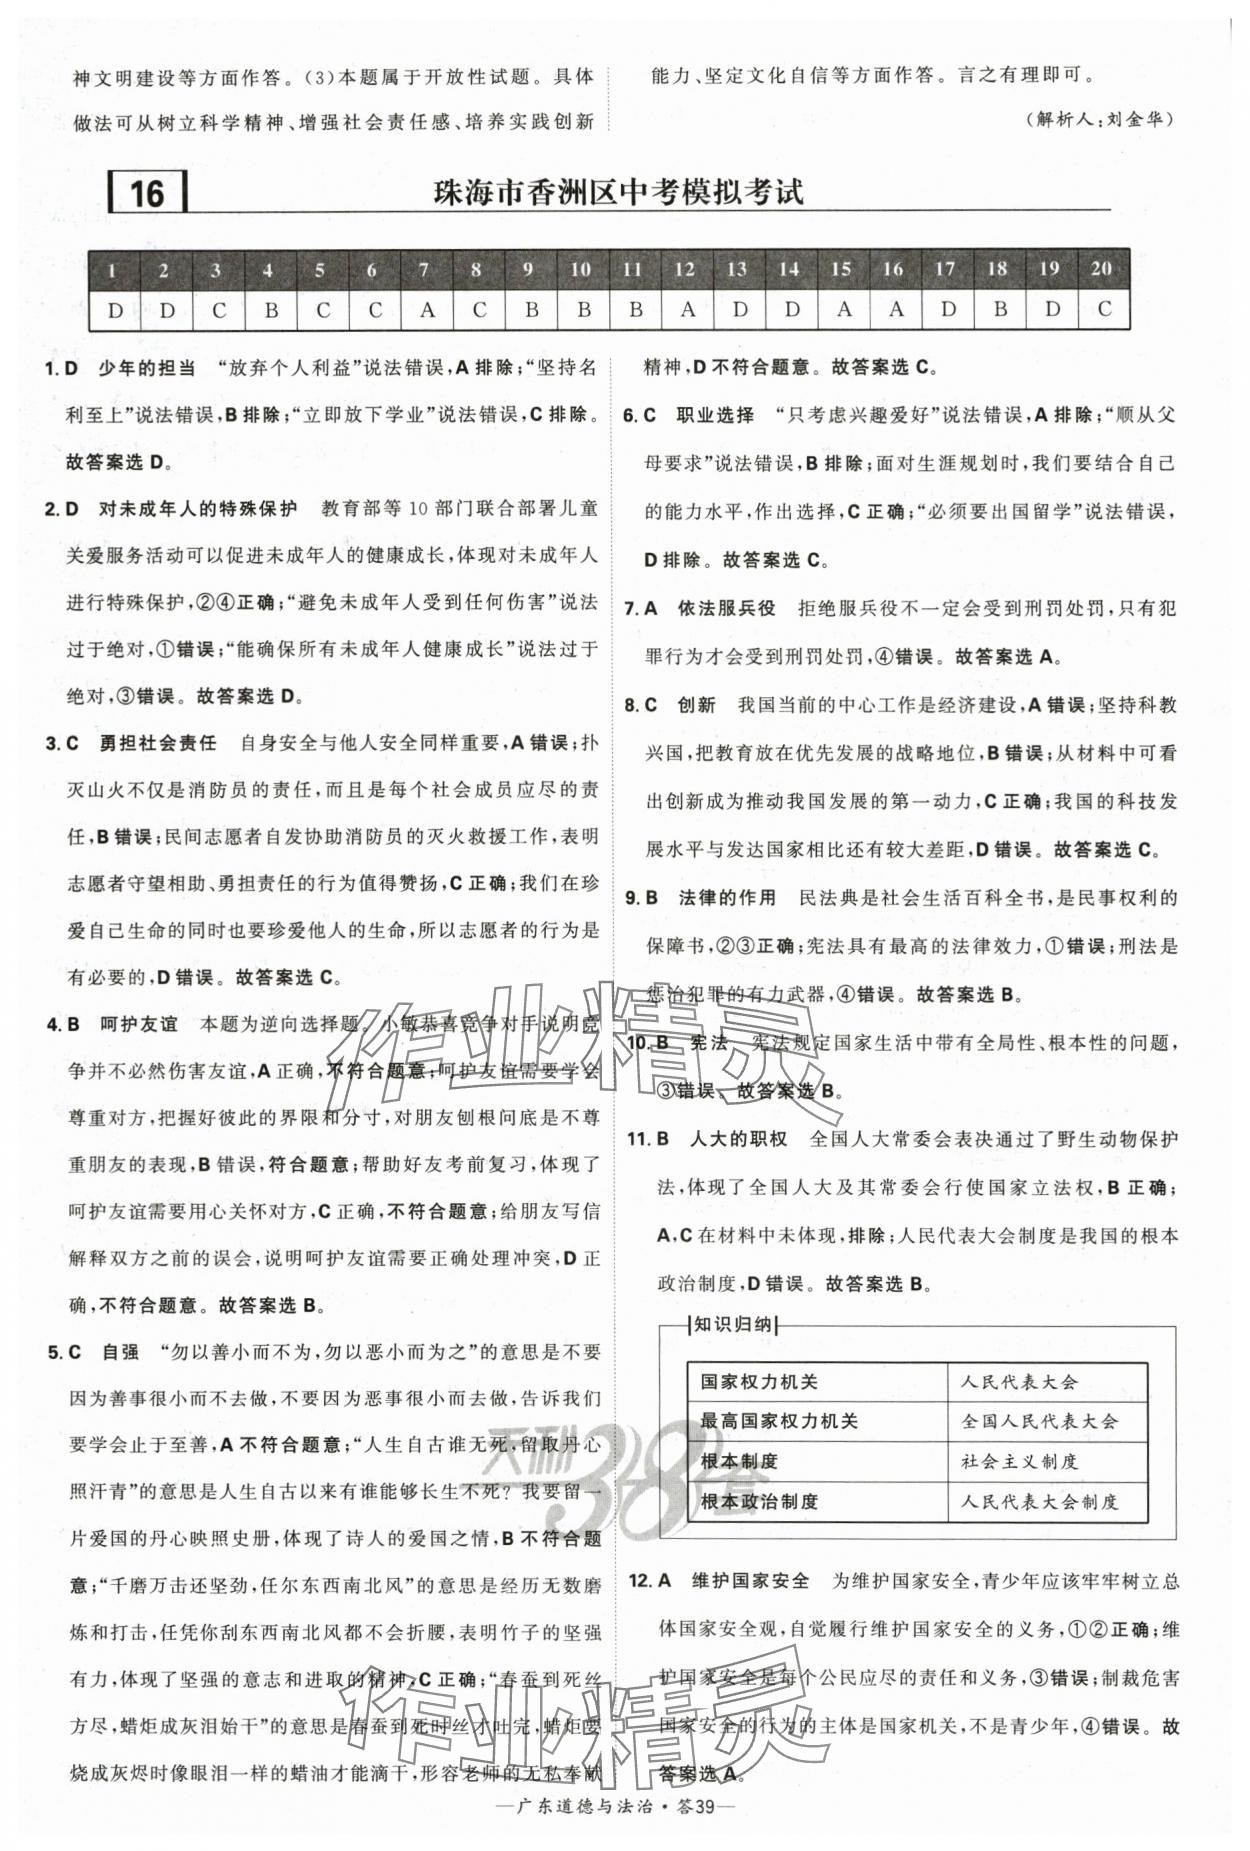 神文明建设等方面作答。(3)本题属于开放性试题。具体
做法可从树立科学精神、增强社会责任感、培养实践创新
能力、坚定文化自信等方面作答。言之有理即可。
(解析人:刘金华)
16 珠海市香洲区中考模拟考试
1 2 3 4 5 6 7 8 9 10 11 12 13 14 15 16 17 18 19 20
D D C B C C A C B B B A D D A A D B D C
1. D 少年的担当 “放弃个人利益”说法错误,A 排除;“坚持名
利至上”说法错误,B 排除;“立即放下学业”说法错误,C 排除。
故答案选 D。
2. D 对未成年人的特殊保护 教育部等 10 部门联合部署儿童
关爱服务活动可以促进未成年人的健康成长,体现对未成年人
进行特殊保护,②④正确;“避免未成年人受到任何伤害”说法
过于绝对,①错误;“能确保所有未成年人健康成长”说法过于
绝对,③错误。故答案选 D。
3. C 勇担社会责任 自身安全与他人安全同样重要,A 错误;扑
灭山火不仅是消防员的责任,而且是每个社会成员应尽的责
任,B 错误;民间志愿者自发协助消防员的灭火救援工作,表明
志愿者守望相助、勇担责任的行为值得赞扬,C 正确;我们在珍
爱自己生命的同时也要珍爱他人的生命,所以志愿者的行为是
有必要的,D 错误。故答案选 C。
4. B 呵护友谊 本题为逆向选择题。小敏恭喜竞争对手说明竞
争并不必然伤害友谊,A 正确,不符合题意;呵护友谊需要学会
尊重对方,把握好彼此的界限和分寸,对朋友刨根问底是不尊
重朋友的表现,B 错误,符合题意;帮助好友考前复习,体现了
呵护友谊需要用心关怀对方,C 正确,不符合题意;给朋友写信
解释双方之前的误会,说明呵护友谊需要正确处理冲突,D 正
确,不符合题意。故答案选 B。
5. C 自强 “勿以善小而不为,勿以恶小而为之”的意思是不要
因为善事很小而不去做,因为恶事很小而去做,告诉我们
要学会止于至善,A 不符合题意;“人生自古谁无死,留取丹心
照汗青”的意思是人生自古以来有谁能够长生不死?我要留一
片爱国的丹心映照史册,体现了诗人的爱国之情,B 不符合题
意;“千磨万击还坚劲,任尔东西南北风”的意思是经历无数磨
炼和打击,任凭你刮东西南北风都不会折腰,表明竹子的坚强
有力,体现了坚强的意志和进取的精神,C 正确;“春蚕到死丝
方尽,蜡炬成灰泪始干”的意思是春蚕到死时丝才吐完,蜡炬要
烧成灰烬时像眼泪一样的蜡油才能滴干,形容老师的无私奉献
精神,D 不符合题意。故答案选 C。
6. C 职业选择 “只考虑兴趣爱好”说法错误,A 排除;“顺从父
母要求”说法错误,B 排除;面对生涯规划时,我们要结合自己
的能力水平,作出选择,C 正确;“必须要出国留学”说法错误,
D 排除。故答案选 C。
7. A 依法服兵役 拒绝服兵役不一定会受到刑罚处罚,只有犯
罪行为才会受到刑罚处罚,④错误。故答案选 A。
8. C 创新 我国当前的中心工作是经济建设,A 错误;坚持科教
兴国,把教育放在优先发展的战略地位,B 错误;从材料中可看
出创新成为推动我国发展的第一动力,C 正确;我国的科技发
展水平与发达国家相比还有较大差距,D 错误。故答案选 C。
9. B 法律的作用 民法典是社会生活百科全书,是民事权利的
保障书,②③正确;宪法具有最高的法律效力,①错误;刑法是
惩治犯罪的有力武器,④错误。故答案选 B。
10. B 宪法 宪法规定国家生活中带有全局性、根本性的问题,
③错误。故答案选 B。
11. B 人大的职权 全国人大常委会表决通过了野生动物保护
法,体现了全国人大及其常委会行使国家立法权,B 正确;
A,C 在材料中未体现,排除;人民代表大会制度是我国的根本
政治制度,D 错误。故答案选 B。
知识归纳
国家权力机关 人民代表大会
最高国家权力机关 全国人民代表大会
根本制度 社会主义制度
根本政治制度 人民代表大会制度
12. A 维护国家安全 为维护国家安全,青少年应该牢牢树立总
体国家安全观,自觉履行维护国家安全的义务,①②正确;维
护国家安全是每个公民应尽的责任和义务,③错误;制裁危害
国家安全的行为的主体是国家机关,不是青少年,④错误。故
答案选 A。
作业精灵
天利38套
作业精灵
—广东道德与法治·答39—